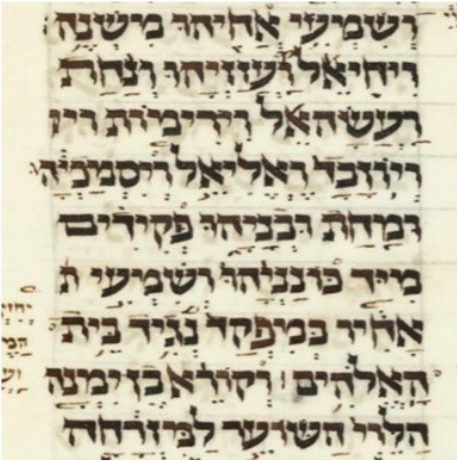 וְשִׁמְעִי אָחִיהוּ מִשְׁנֶה
וִיחִיאֵל וַעֲזַזְיָהוּ וְנַחַת
וַעֲשָׂהאֵל וִירִימוֹת ויו
וְיוֹזָבָד וֶאֱלִיאֵל וְיִסְמַכְיָהוּ
וּמַחַת וּבְנָיָהוּ פְּקִידִים
מִיַּד כּוֹנַנְיָהוּ וְשִׁמְעִי
אָחִיו בְּמִפְקַד נְגִיד בֵּית
הָאֱלֹהִים׃ וְקוֹרֵא בֶן יִמְנָה
הַלֵּוִי הַשּׁוֹעֵר לַמִּזְרָחָה